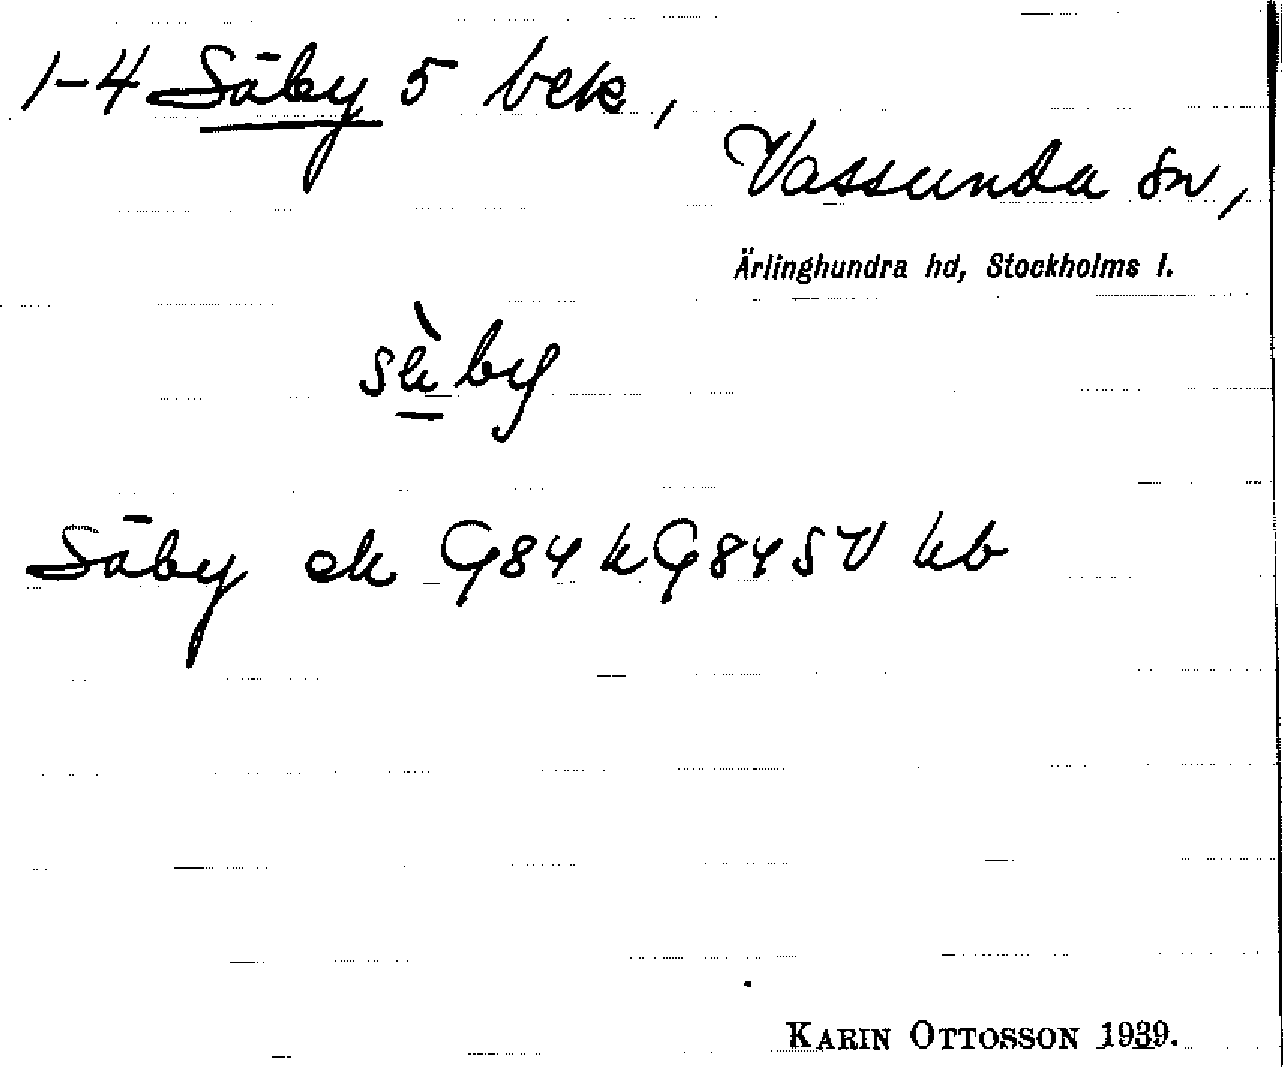 1-4 Säby 5 bek,
Vassunda sn,
Ärlinghundra hd, Stockholms l.
sä̀by
Säby ek G84 k G845V kb
KARIN OTTOSSON 1939.